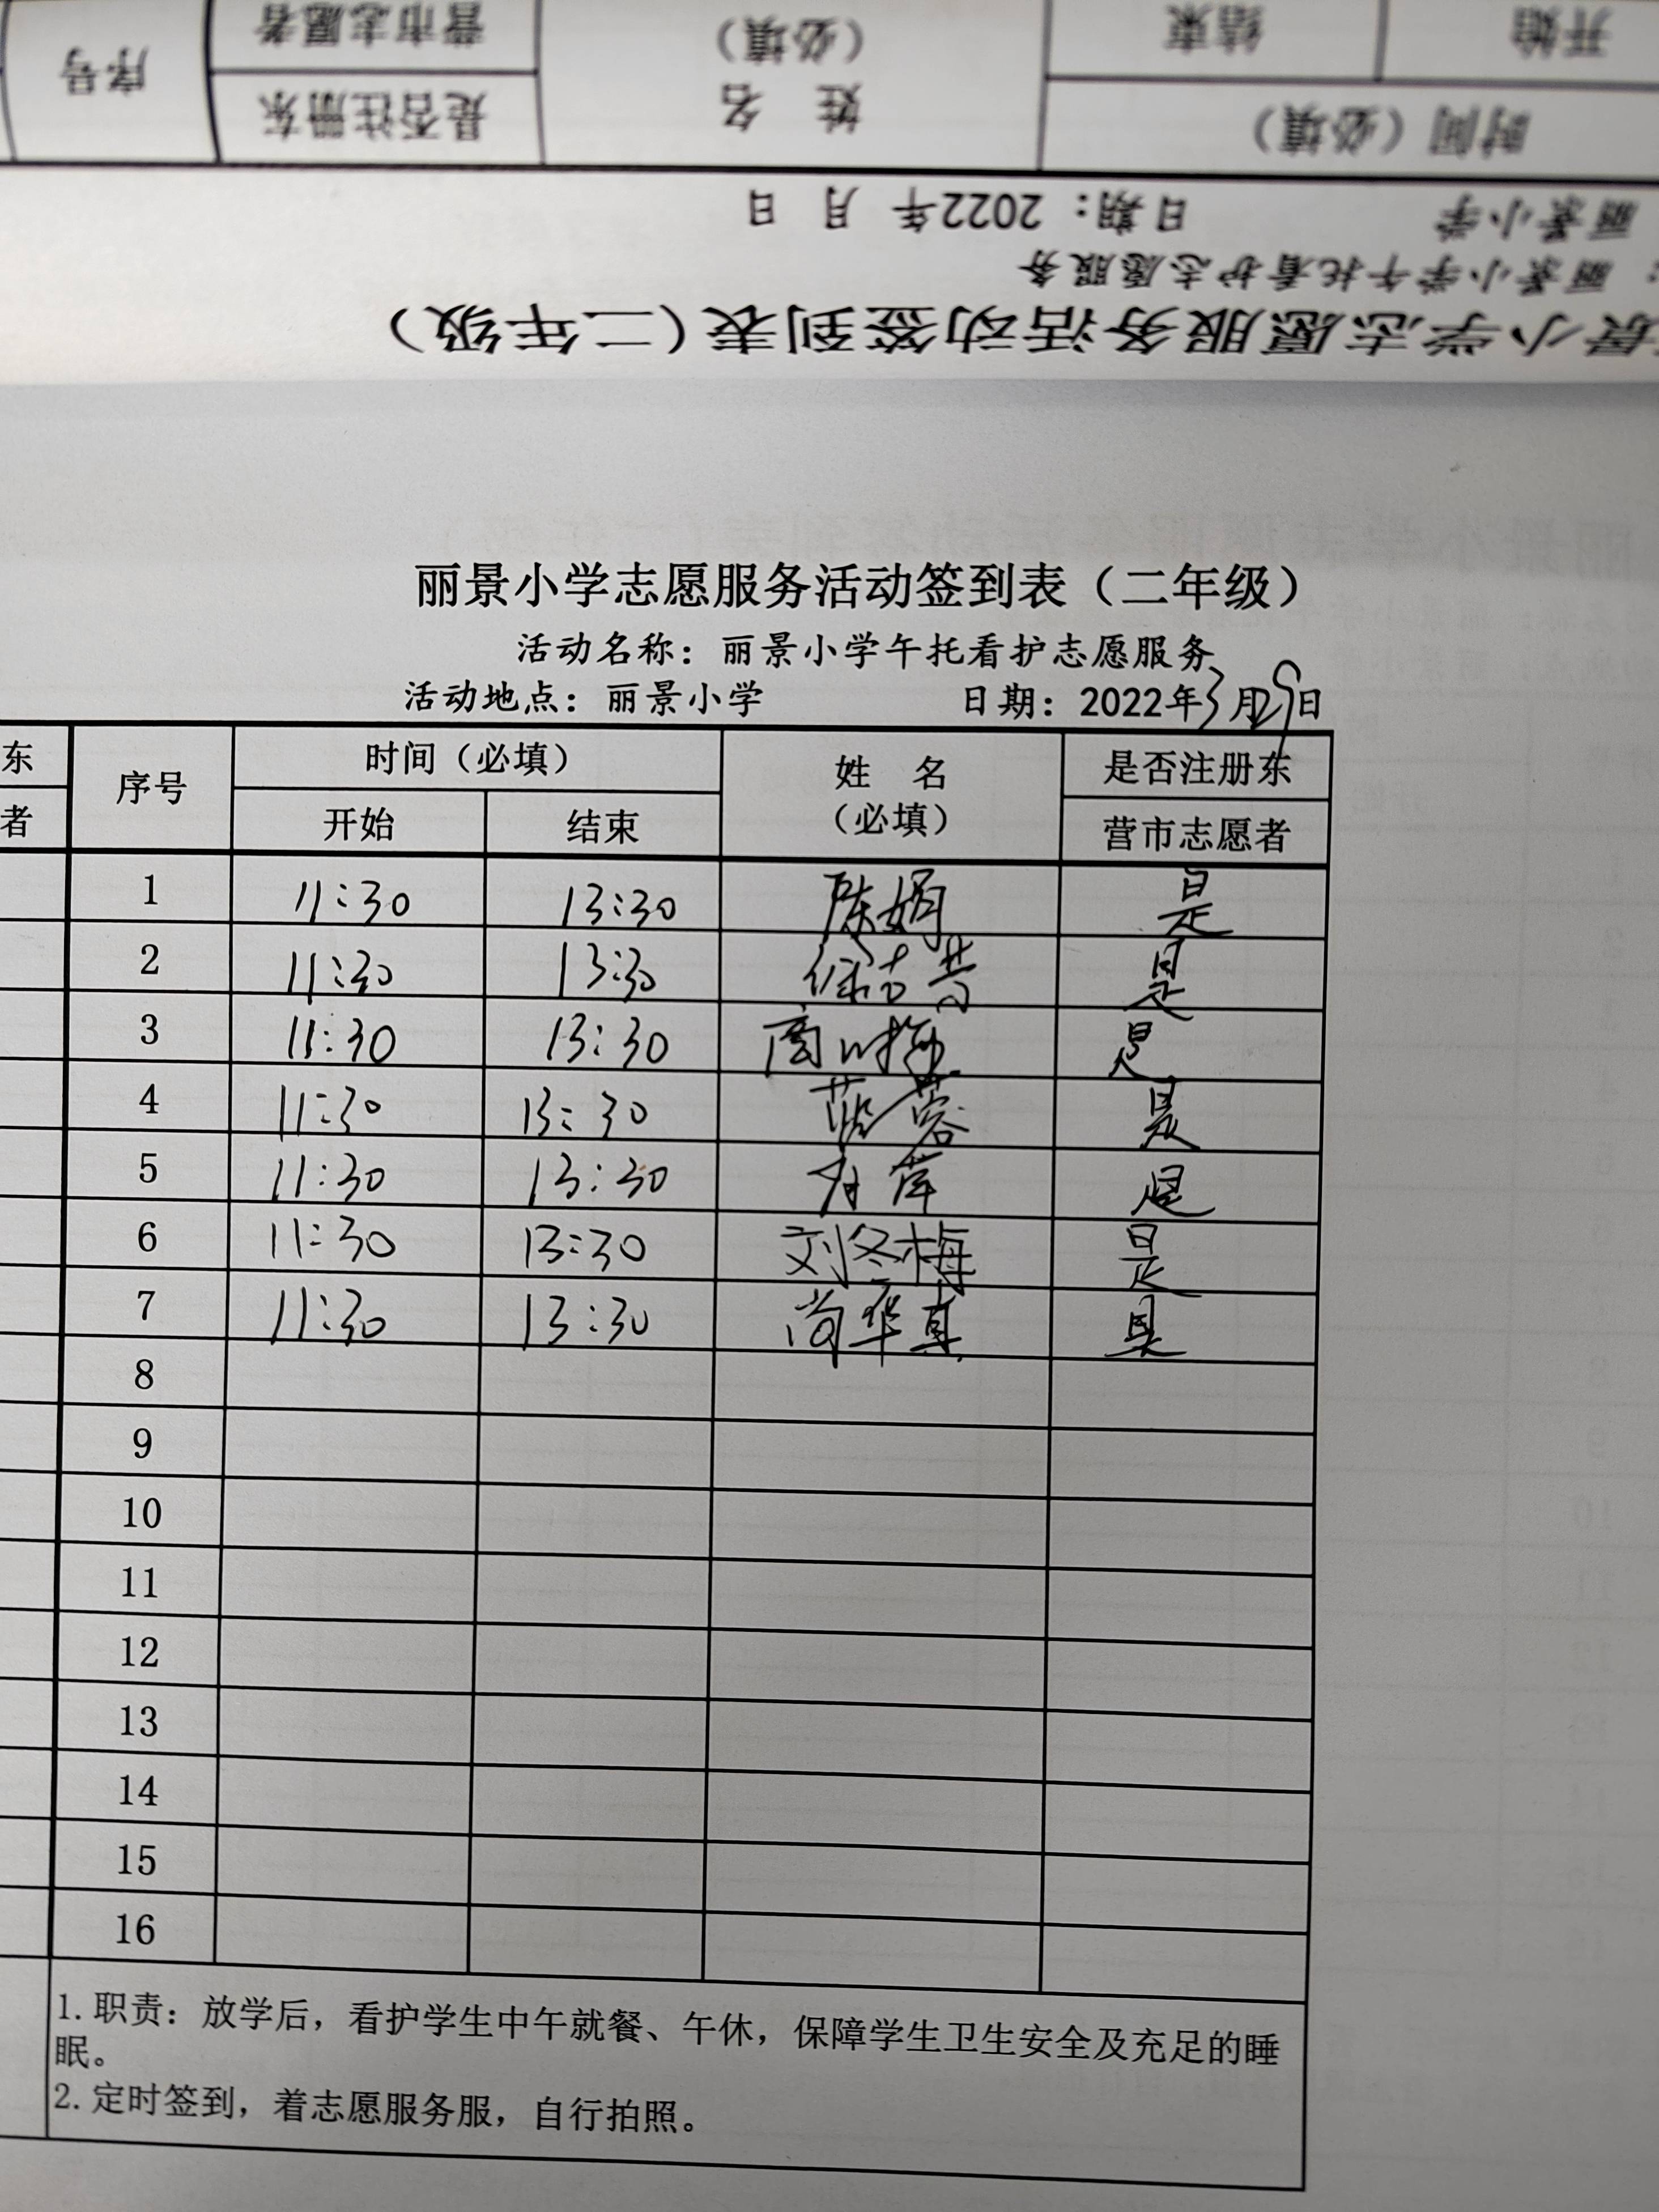 序号
是否注册东
营市志愿者
姓 名
（必填）
时间（必填）
开始
结束
丽景小学
日期：2022年 月 日
丽景小学午托看护志愿服务
景小学志愿服务活动签到表（二年级）
丽景小学志愿服务活动签到表（二年级）
活动名称：丽景小学午托看护志愿服务
活动地点：丽景小学 日期：2022年3月29日
东
者
序号 时间（必填） 姓 名（必填） 是否注册东
开始 结束 营市志愿者
1 11:30 13:30 陈娟 是
2 11:30 13:30 是
3 11:30 13:30 是
4 11:30 13:30 是
5 11:30 13:30 是
6 11:30 13:30 刘冬梅 是
7 11:30 13:30 尚华真 是
8
9
10
11
12
13
14
15
16
1.职责：放学后，看护学生中午就餐、午休，保障学生卫生安全及充足的睡
眠。
2.定时签到，着志愿服务服，自行拍照。